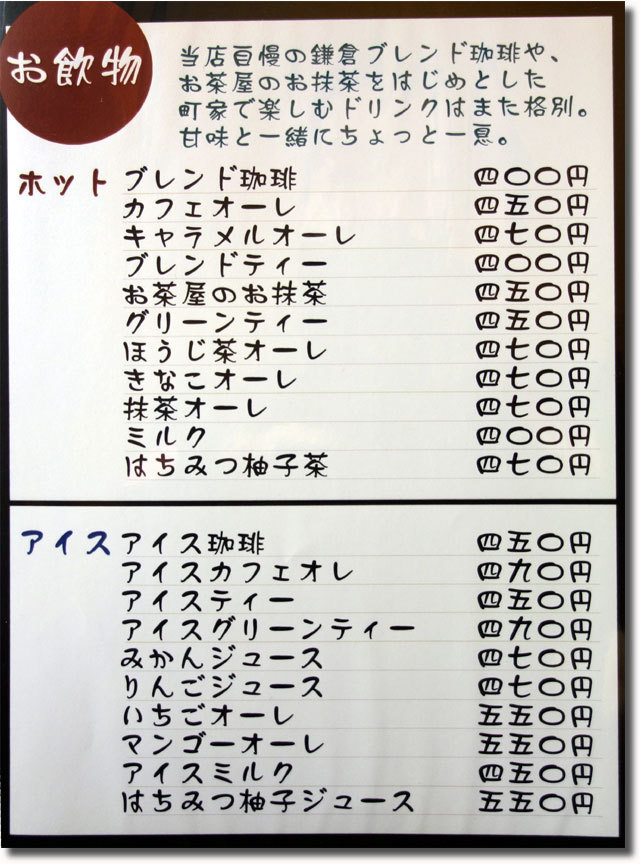 お飲物
当店自慢の鎌倉ブレンド珈琲や、
お茶屋のお抹茶をはじめとした
町家で楽しむドリンクはまた格別。
甘味と一緒にちょっと一息。
ホット
ブレンド珈琲 四〇〇円
カフェオーレ 四五〇円
キャラメルオーレ 四七〇円
ブレンドティー 四〇〇円
お茶屋のお抹茶 四五〇円
グリーンティー 四五〇円
ほうじ茶オーレ 四七〇円
きなこオーレ 四七〇円
抹茶オーレ 四七〇円
ミルク 四〇〇円
はちみつ柚子茶 四七〇円
アイス
アイス珈琲 四五〇円
アイスカフェオレ 四九〇円
アイスティー 四五〇円
アイスグリーンティー 四九〇円
みかんジュース 四七〇円
りんごジュース 四七〇円
いちごオーレ 五五〇円
マンゴーオーレ 五五〇円
アイスミルク 四五〇円
はちみつ柚子ジュース 五五〇円